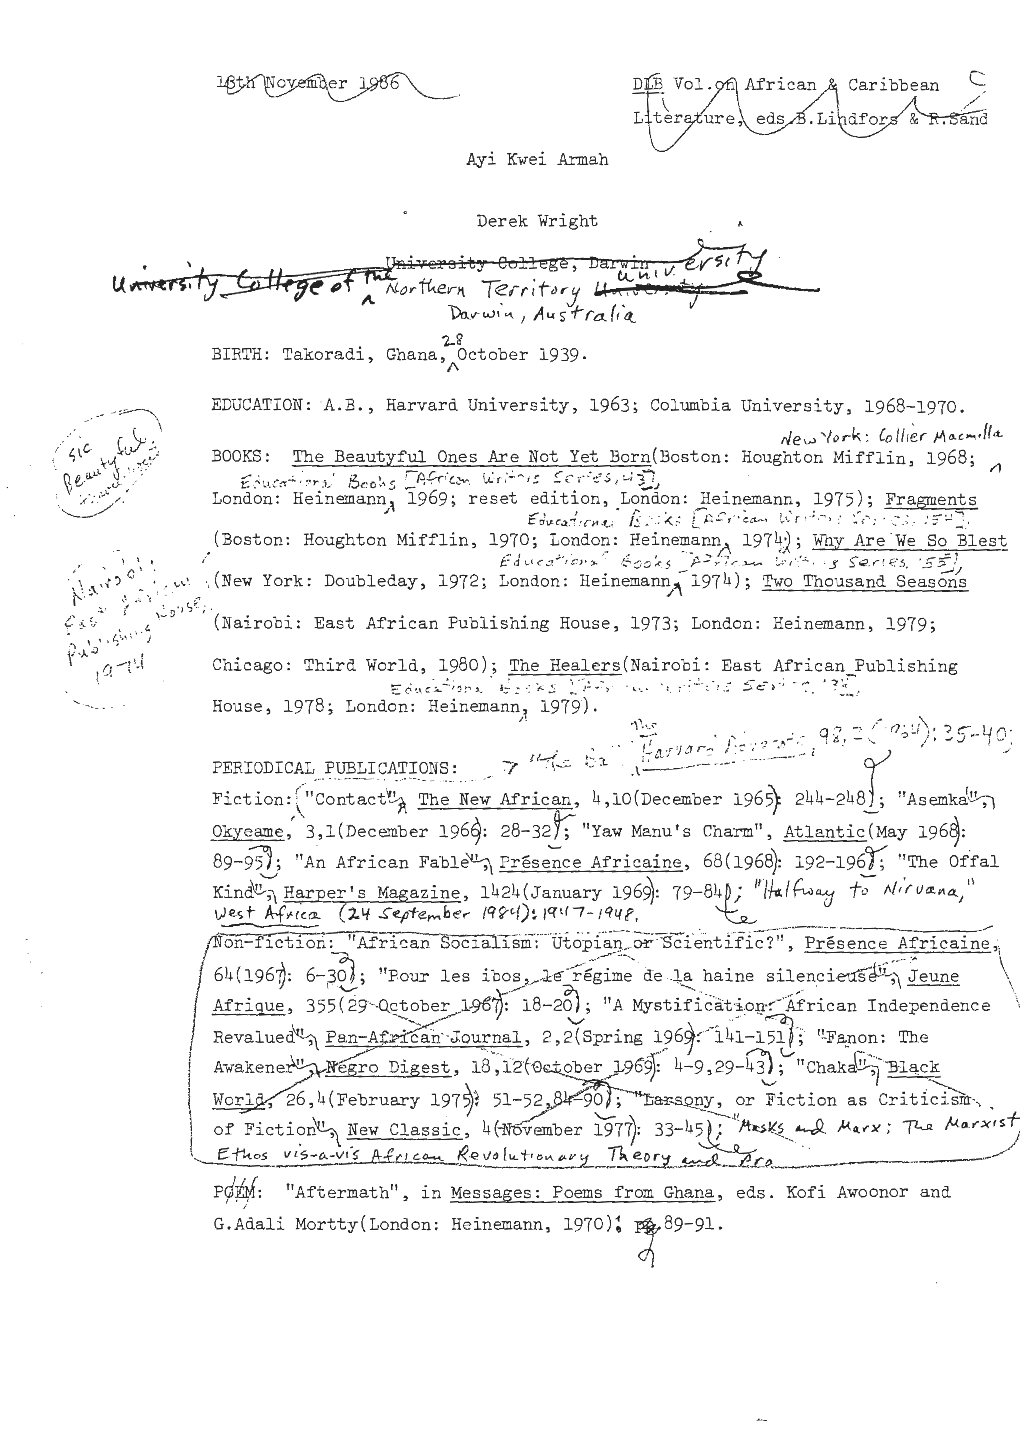 18th November 1986
DLB Vol.on African & Caribbean
Literature, eds B.Lindfors & R.Sand
Ayi Kwei Armah
Derek Wright
University College, Darwin
University College of the Northern Territory University
University
Darwin, Australia
28
BIRTH: Takoradi, Ghana, October 1939.
EDUCATION: A.B., Harvard University, 1963; Columbia University, 1968-1970.
New York: Collier Macmilla
sic
Beautyful
BOOKS: The Beautyful Ones Are Not Yet Born(Boston: Houghton Mifflin, 1968;
Educational Books [African Writers Series, 43],
London: Heinemann, 1969; reset edition, London: Heinemann, 1975); Fragments
Educational Books [African Writers Series, 154],
(Boston: Houghton Mifflin, 1970; London: Heinemann, 1974;); Why Are We So Blest
Educational Books [African Writers Series, 155],
Nairobi:
East African
Publishing House,
1974
(New York: Doubleday, 1972; London: Heinemann, 1974); Two Thousand Seasons
(Nairobi: East African Publishing House, 1973; London: Heinemann, 1979;
Chicago: Third World, 1980); The Healers(Nairobi: East African Publishing
Educational Books [African Writers Series,
House, 1978; London: Heinemann, 1979).
The
"The Harvard Advocate, 98, 2 (1964): 35-40;
PERIODICAL PUBLICATIONS:
Fiction: "Contact", The New African, 4,10(December 1965): 244-248); "Asemka",
Okyeame, 3,1(December 1966): 28-32); "Yaw Manu's Charm", Atlantic(May 1968):
89-95); "An African Fable", Présence Africaine, 68(1968): 192-196); "The Offal
Kind", Harper's Magazine, 1424(January 1969): 79-84); "Halfway to Nirvana,"
West Africa (24 September 1984): 1947-1948.
Non-fiction: "African Socialism: Utopian or Scientific?", Présence Africaine,
64(1967): 6-30); "Pour les ibos, le régime de la haine silencieuse", Jeune
Afrique, 355(29 October 1967): 18-20); "A Mystification: African Independence
Revalued", Pan-African Journal, 2,2(Spring 1969): 141-151); "Fanon: The
Awakener", Negro Digest, 18,12(October 1969): 4-9,29-43); "Chaka", Black
World, 26,4(February 1975): 51-52,84-90); "Larsony, or Fiction as Criticism
of Fiction", New Classic, 4(November 1977): 33-45); "Masks and Marx: The Marxist
Ethos vis-a-vis African Revolutionary Theory and Pra
POEM: "Aftermath", in Messages: Poems from Ghana, eds. Kofi Awoonor and
G.Adali Mortty(London: Heinemann, 1970): pp.89-91.